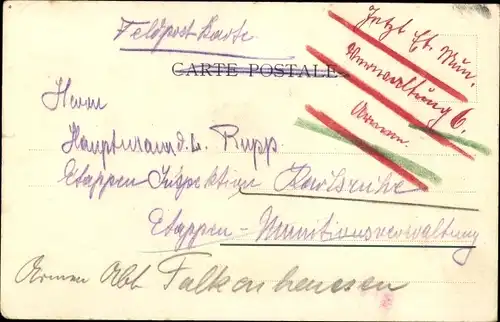 Feldpost Karte
Jetzt Et. Mun.
Verwaltung 6.
Armee.
CARTE POSTALE
Herrn
Hauptmann d. L. Rupp
Etappen Inspektion Karlsruhe
Etappen-Munitionsverwaltung
Armee Abt. Falkenhausen